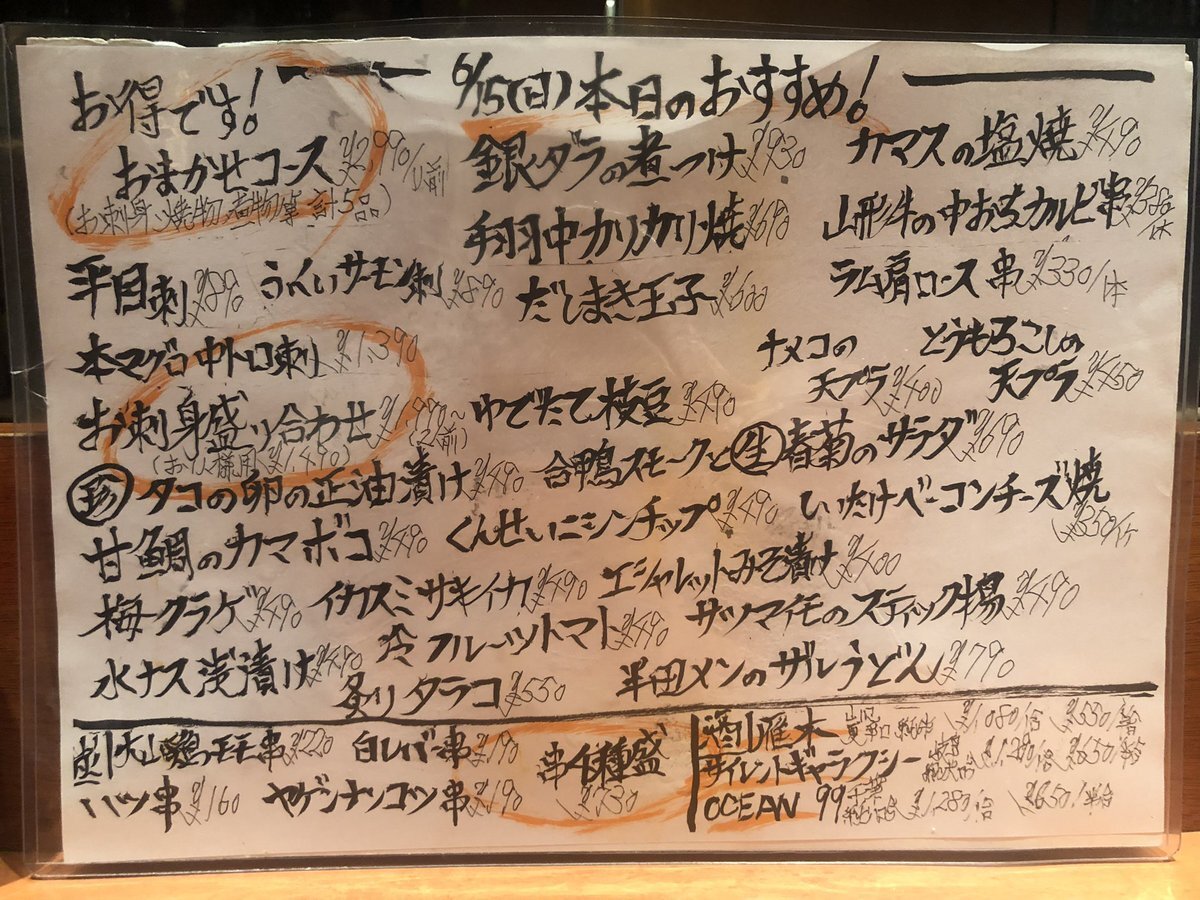 6/15(日)本日のおすすめ!
お得です!
おまかせコース ¥2990/人前
(お刺身、焼物、煮物等 計5品)
銀ダラの煮つけ ¥930
カマスの塩焼 ¥490
手羽中カリカリ焼 ¥690
山形牛の中おちカルビ串 ¥380/本
平目刺 ¥890
うんいサーモン刺 ¥890
だしまき玉子 ¥600
ラム肩ロース串 ¥330/本
本マグロ中トロ刺 ¥1,390
ナメコの天プラ ¥400
とうもろこしの天プラ ¥450
お刺身盛り合わせ
(お一人様用 ¥1,490)
ゆでたて枝豆 ¥490
合鴨スモークと生春菊のサラダ ¥690
珍 タコの卵の正油漬け ¥490
甘鯛のカマボコ ¥490
くんせいニシンチップ ¥490
しいたけベーコンチーズ焼 ¥350/ケ
梅クラゲ ¥490
イカスミサキイカ ¥490
エシャレットみそ漬け ¥400
冷フルーツトマト ¥490
サツマイモのスティック揚 ¥490
水ナス浅漬け ¥490
炙りタラコ ¥550
半田メンのザルうどん ¥790
大山鶏モモ串 ¥220
白レバー串 ¥190
串4種盛 ¥730
ハツ串 ¥160
ヤゲンナンコツ串 ¥190
酒 雁木 山口 ¥1,080/合 ¥550/半合
サイレントギャラクシー ¥1,290/合 ¥650/半合
OCEAN 99 千葉 ¥1,280/合 ¥650/半合